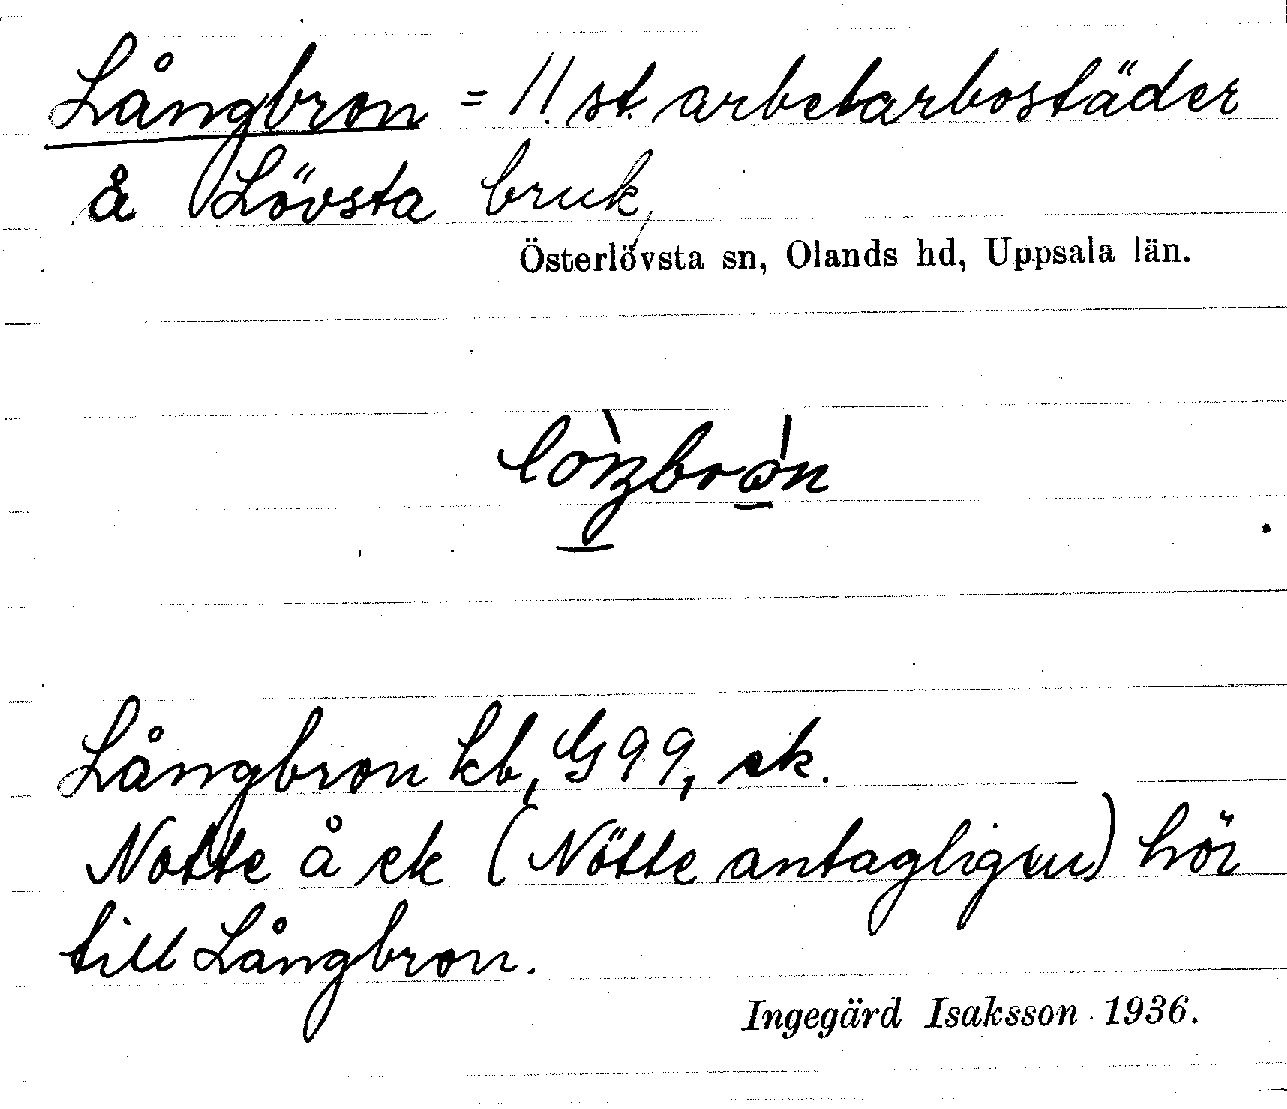 Långbron = 11 st. arbetarbostäder
å Lövsta bruk,
Österlövsta sn, Olands hd, Uppsala län.
Långbron kb, G 99, ek.
Notte å ek (Nötte antagligen) hör
till Långbron.
Ingegärd Isaksson 1936.